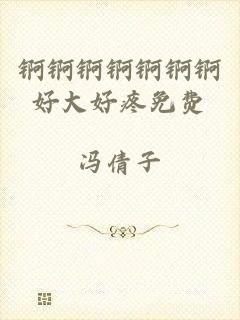 锕锕锕锕锕锕锕
好大好疼免费
冯倩子